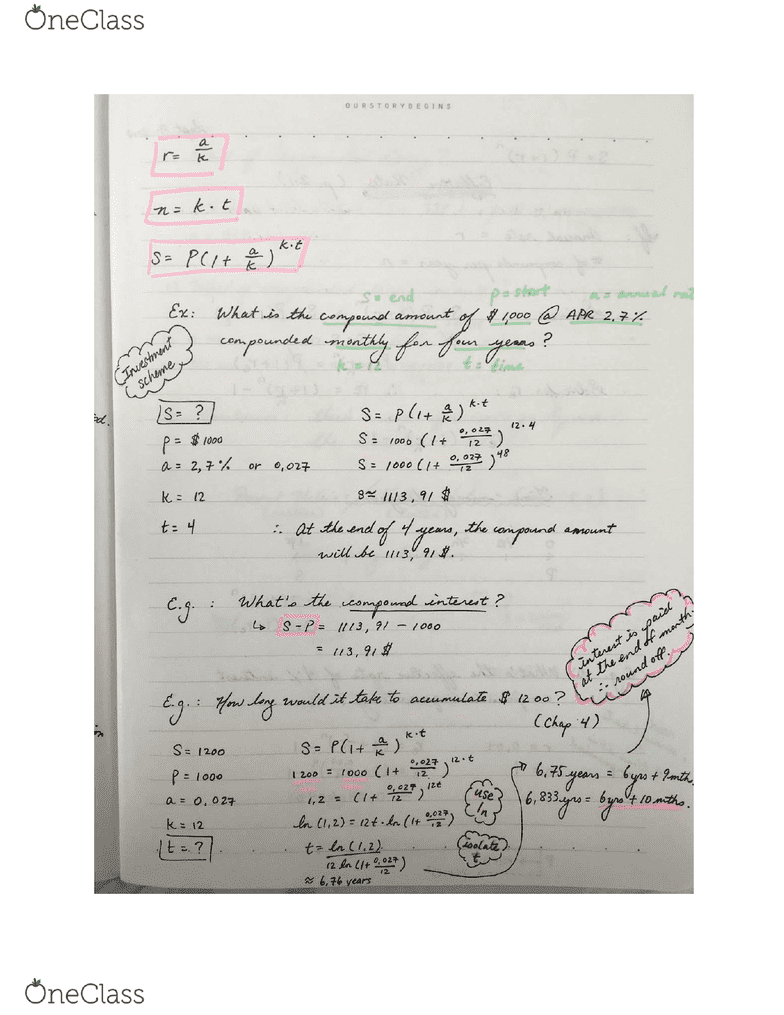 OneClass
OURSTORYBEGINS
r = a/k
n = k · t
S = P(1 + a/k)^k·t
S = end p = start a = annual rat
Ex: What is the compound amount of $1,000 @ APR 2,7%
compounded monthly for four years?
k = 12 t = time
Investment
scheme
S = ?
P = $1000
a = 2,7% or 0,027
k = 12
t = 4
S = P(1 + a/k)^k·t
S = 1000 (1 + 0,027/12)^12·4
S = 1000 (1 + 0,027/12)^48
S ≈ 1113,91 $
∴ At the end of 4 years, the compound amount
will be 1113,91 $.
E.g. : What's the compound interest?
↳ S-P = 1113,91 - 1000
= 113,91 $
interest is paid
at the end of month
∴ round off.
E.g. : How long would it take to accumulate $1200?
(Chap 4)
S = 1200
P = 1000
a = 0,027
k = 12
t = ?
S = P(1 + a/k)^k·t
1200 = 1000 (1 + 0,027/12)^12·t
1,2 = (1 + 0,027/12)^12t
ln (1,2) = 12t · ln (1 + 0,027/12)
t = ln (1,2) / 12 ln (1 + 0,027/12)
≈ 6,76 years
use
ln
isolate
t
6,75 years = 6yrs + 9mth.
6,833yrs = 6yrs + 10 mths.
OneClass